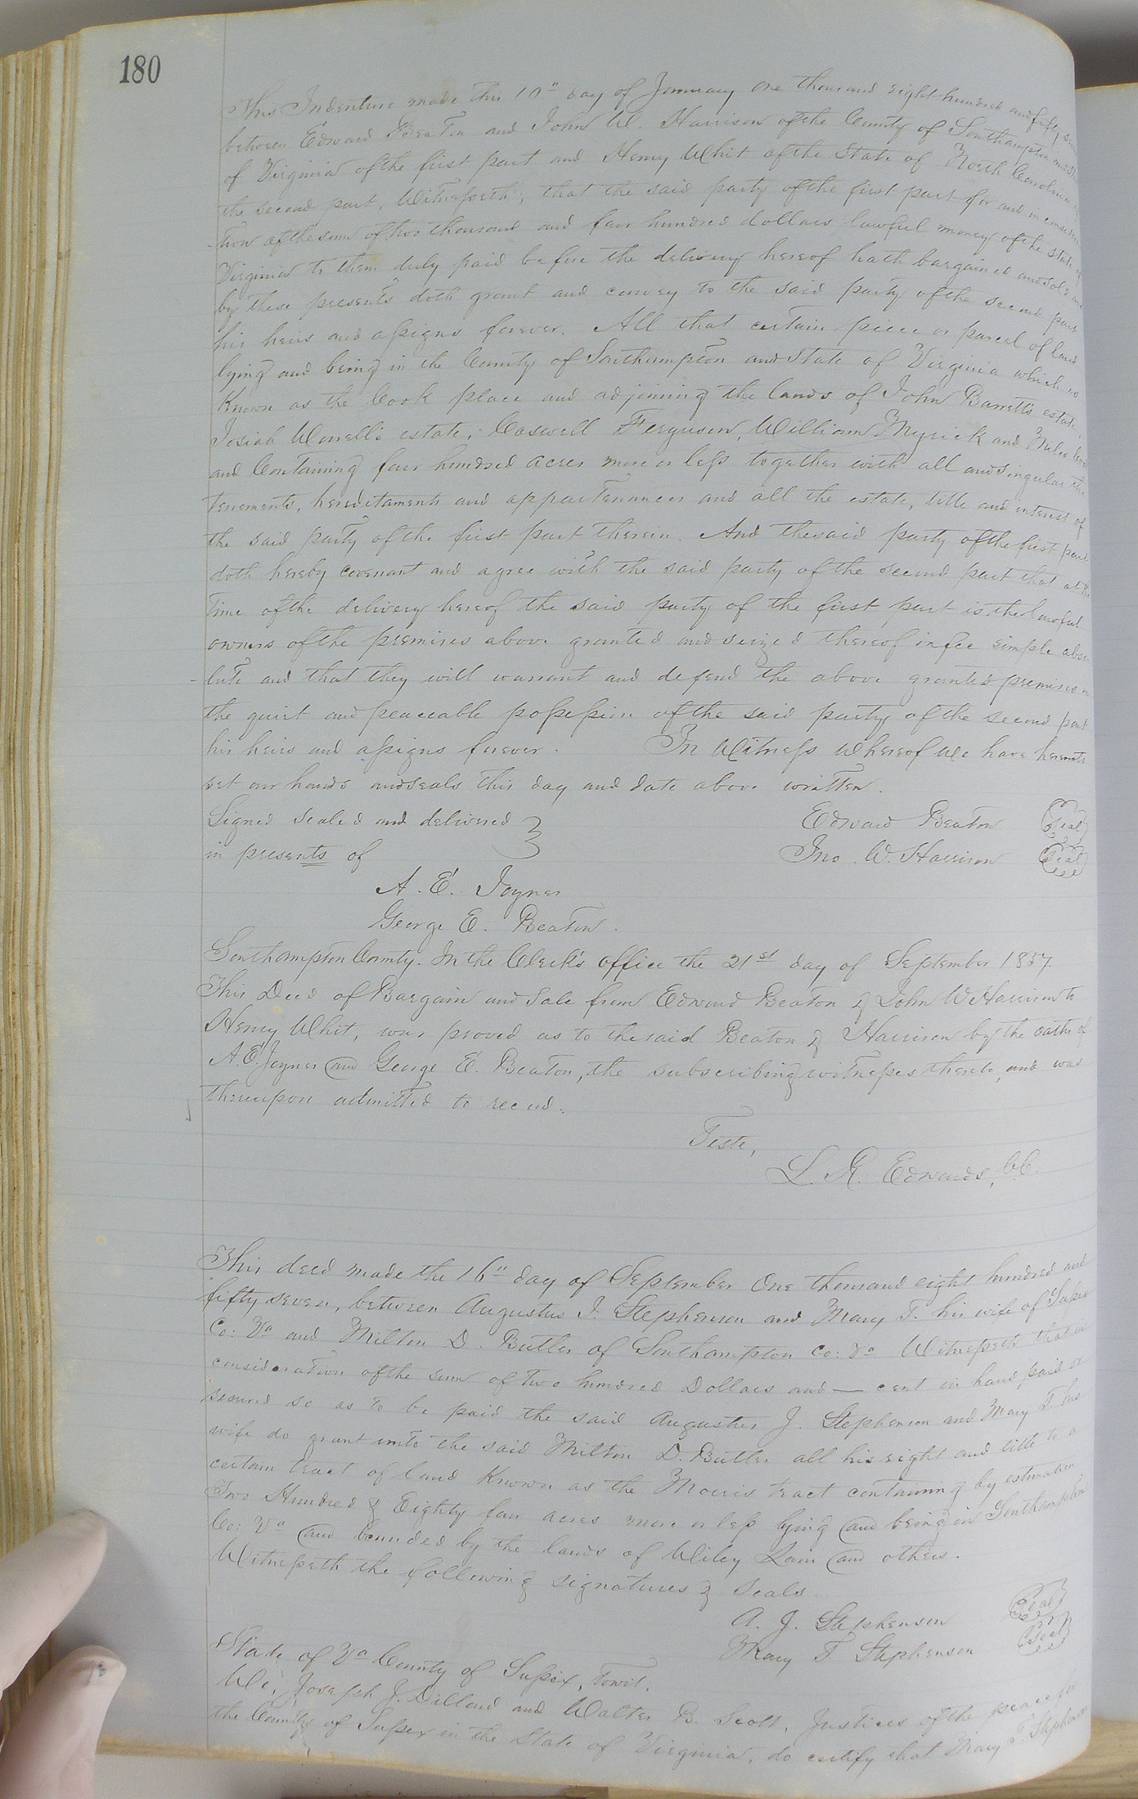 180
This Indenture made this 10" day of January one thousand eight hundred and fifty
between Edward Beaton and John W. Harrison of the County of Southampton and
of Virginia of the first part and Henry Whit of the State of North Carolina
the second part, Witnesseth; that the said party of the first part for and in considera
tion of the sum of two thousand and four hundred dollars lawful money of the state of
Virginia to them duly paid before the delivery hereof hath bargained and sold and
by these presents doth grant and convey to the said party of the second part
his heirs and assigns forever. All that certain piece or parcel of land
lying and being in the County of Southampton and State of Virginia which is
Known as the Cook place and adjoining the lands of John Barrett's estate,
Josiah Worrell's estate, Caswell Ferguson, William Myrick and
and Containing four hundred acres more or less together with all and singular the
tenements, hereditaments and appurtenances and all the estate, title and interest of
the said party of the first part therein. And the said party of the first part
doth hereby covenant and agree with the said party of the second part that at the
time of the delivery hereof the said party of the first part is the lawful
owners of the premises above granted and seized thereof in fee simple abso
lute and that they will warrant and defend the above granted premises in
the quiet and peaceable possession of the said party of the second part
his heirs and assigns forever. In Witness Whereof We have hereunto
set our hands and seals this day and date above written.
Signed sealed and delivered } Edward Beaton Seal
in presents of Jno. W. Harrison Seal
A. E. Joyner
George E. Beaton.
Southampton County. In the Clerk's office the 21st day of September 1857
This Deed of Bargain and Sale from Edward Beaton & John W Harrison to
Henry Whit, was proved as to the said Beaton & Harrison by the oaths of
A. E. Joyner and George E. Beaton, the subscribing witnesses thereto, and was
thereupon admitted to record.
Teste,
L. R. Edwards, C.C.
This deed made the 16" day of September One thousand eight hundred and
fifty seven, between Augustus J. Stephenson and Mary T. his wife of Sussex
Co: Va and Milton D. Butler of Southampton Co: Va Witnesseth that in
consideration of the sum of two hundred Dollars and — cent in hand paid or
secured so as to be paid the said Augustus J. Stephenson and Mary T. his
wife do grant unto the said Milton D. Butler all his right and title to a
certain tract of land Known as the Morris tract containing by estimation
Two Hundred & Eighty four acres more or less lying and being in Southampton
Co: Va and bounded by the lands of Wiley Lain and others.
Witnesseth the following signatures & seals
A. J. Stephenson Seal
Mary T. Stephenson Seal
State of Va County of Sussex, towit.
We, Joseph J. Dillard and Walter B. Scott, Justices of the peace for
the County of Sussex in the State of Virginia, do certify that Mary T. Stephenson